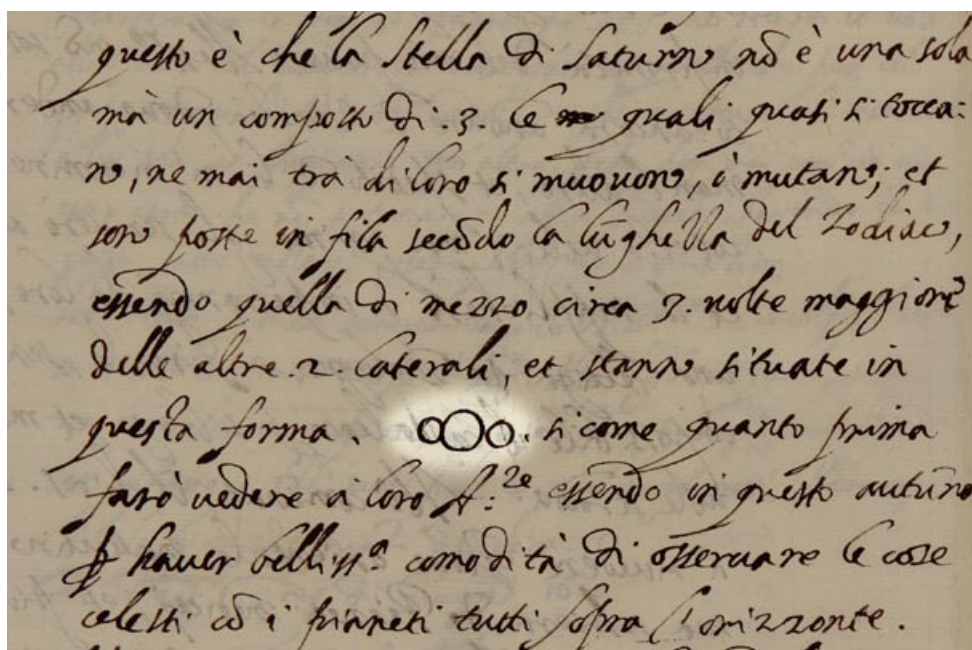 questo è che la Stella di Saturno nõ è una sola
mà un composto di .3. le quali quasi si tocca:
no, ne mai trà di loro si muovono, ò mutano; et
sono poste in fila secõdo la lũghezza del Zodiaco,
essendo quella di mezzo circa 3. volte maggiore
delle altre .2. laterali, et stanno situate in
questa forma. oOo. si come quanto prima
farò vedere à loro A.ze essendo in questo autũno
ꝑ haver belliss.a comodità di osservare le cose
celesti cõ i pianeti tutti sopra l'orizzonte.